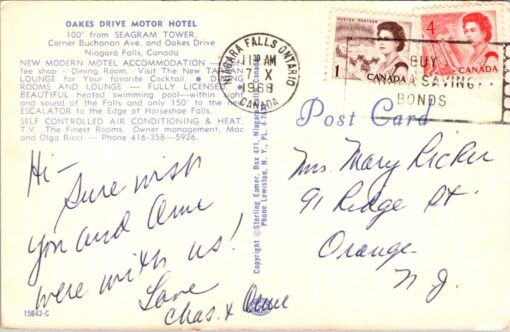 OAKES DRIVE MOTOR HOTEL
100' from SEAGRAM TOWER.
Corner Buchanan Ave. and Oakes Drive
Niagara Falls, Canada
NEW MODERN MOTEL ACCOMMODATION
fee shop - Dining Room. Visit The New
LOUNGE for your favorite Cocktail.
ROOMS AND LOUNGE — FULLY LICENSED
BEAUTIFUL heated swimming pool—within
sound of the Falls and only 150' to the
ESCALATOR to the Edge of Horseshoe Falls.
SELF CONTROLLED AIR CONDITIONING & HEAT.
T.V. The Finest Rooms. Owner management, Mac
and Olga Ricci — Phone 416-358—5926.
NIAGARA FALLS ONTARIO
11 AM
7 X
1968
CANADA
POSTES POSTAGE
1
CANADA
4
CANADA
BUY
SAVINGS
BONDS
Copyright ©Sterling Esmer, Box 471, Niagara Falls, Canada
Phone Lewiston, N. Y., PL
Post Card
Hi -
Sure wish
you and
were with us!
Love
Chas. &
Mrs. Mary Ricker
91 Ridge St.
Orange
N J.
15642-C